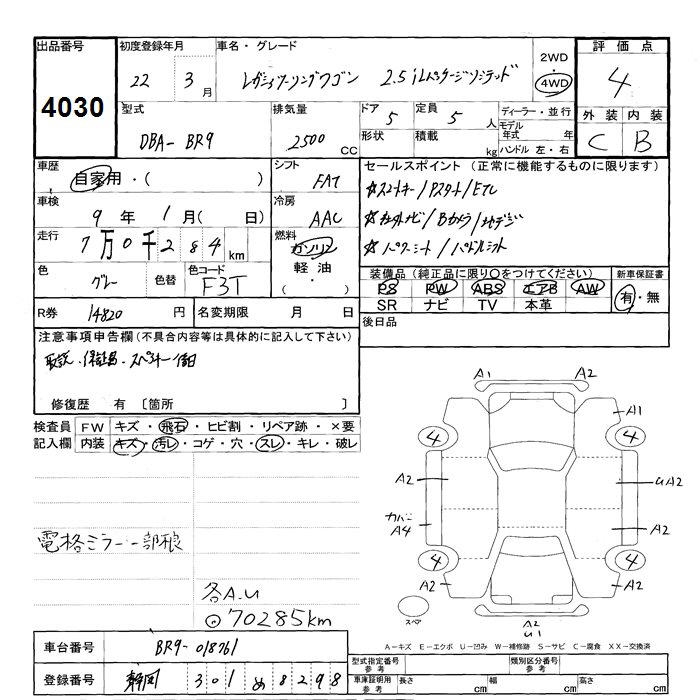 出品番号 初度登録年月 車名・グレード 評価点
4030 22 年 3月 レガシィツーリングワゴン 2.5iLパッケージリミテッド 2WD 4WD 4
型式 排気量 ドア 5 定員 5人 ディーラー・並行 外装 内装
DBA-BR9 2500cc 形状 積載 kg モデル年式 年 C B
ハンドル 左・右
車歴 自家用・( ) シフト FAT セールスポイント (正常に機能するものに限ります)
車検 9年 1月( 日) 冷房 AAC ☆スマートキー/Pスタート/ETC
走行 7万0千284km 燃料 ガソリン ☆社外ナビ/Bカメラ/地デジ
軽油 ・( ) ☆パワーシート/パドルシフト
色 グレー 色替 色コード F3T 装備品 (純正品に限り○をつけてください) 新車保証書
PS PW ABS エアB AW 有・無
SR ナビ TV 本革
R券 14820円 名変期限 月 日 後日品
注意事項申告欄(不具合内容等は具体的に記入して下さい)
取説・保証書・スペアキー後日
修復歴 有 〔箇所 〕
検査員記入欄 FW キズ・飛石・ヒビ割・リペア跡・×要
内装 キズ・汚レ・コゲ・穴・スレ・キレ・破レ
A1 A2
A1
4 4
A2 UA2
カバー A4 A2
4 4
A2 A2
スペア A2 U1
電格ミラー一部狼
各A.U
⊙70285km
A-キズ E-エクボ U-凹み W-補修跡 S-サビ C-腐食 XX-交換済
車台番号 BR9-018761
登録番号 静岡 301 め 8298
型式指定番号 参考 類別区分番号 参考
車庫証明用 参考 長さ cm 幅 cm 高さ cm